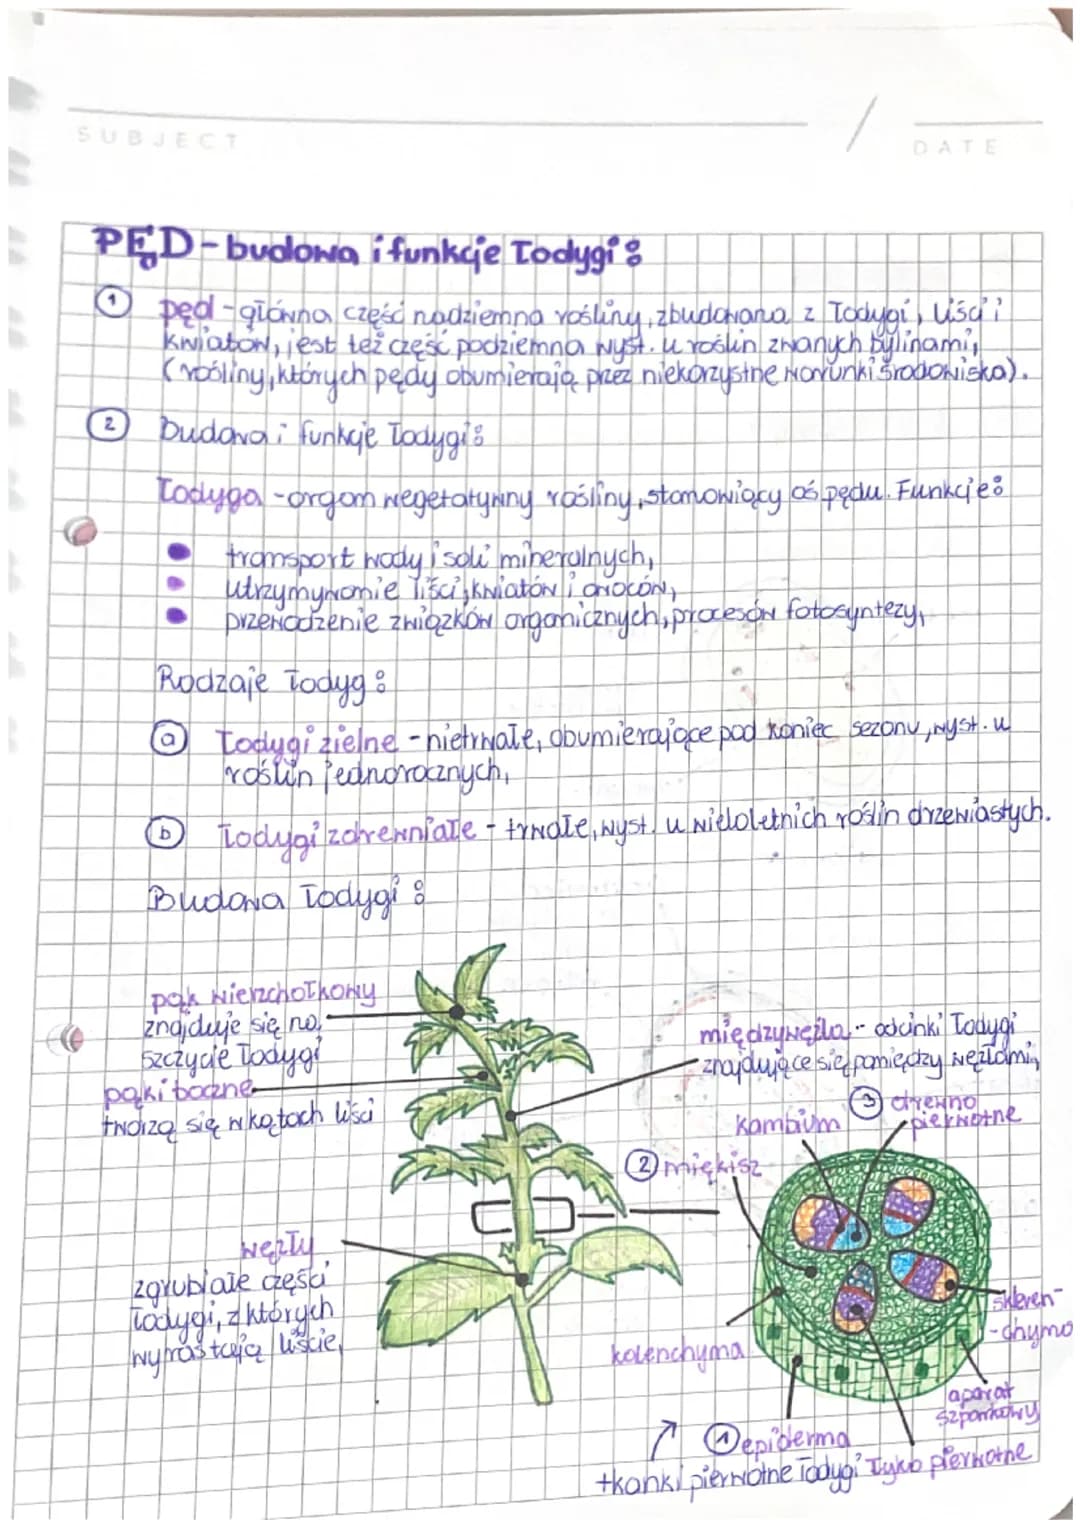 SUBJECT
DATE
PĘD - budowa i funkcje łodygi:
1 pęd - główna część nadziemna rośliny, zbudowana z łodygi, liści i
kwiatów, jest też część podziemna wyst. u roślin zwanych bylinami,
(rośliny, których pędy obumierają przez niekorzystne warunki środowiska).
2 budowa i funkcje łodygi:
Łodyga - organ wegetatywny rośliny, stanowiący oś pędu. Funkcje:
transport wody i soli mineralnych,
utrzymywanie liści, kwiatów i owoców,
przewodzenie związków organicznych, procesów fotosyntezy,
Rodzaje łodyg:
a Łodygi zielne - nietrwałe, obumierające pod koniec sezonu, wyst. u
roślin jednorocznych,
b Łodygi zdrewniałe - trwałe, wyst. u wieloletnich roślin drzewiastych.
Budowa łodygi:
pąk wierzchołkowy
znajduje się na
szczycie łodygi
pąki boczne
tworzą się w kątach liści
węzły
zgrubiałe części
łodygi, z których
wyrastają liście,
międzywęźla - odcinki łodygi
znajdujące się pomiędzy węzłami,
3 drewno
pierwotne
kambium
2 miękisz
skleren-
-chyma
kolenchyma
aparat
szparkowy
1 epiderma
tkanki pierwotne łodygi
łyko pierwotne